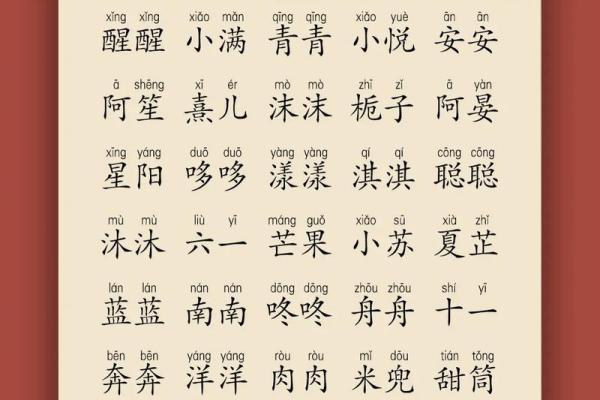 xǐng xǐng xiǎo mǎn qīng qīng xiǎo yuè ān ān
醒醒 小满 青青 小悦 安安
ā shēng xī ér mò mò zhī zǐ ā yàn
阿笙 熹儿 沫沫 栀子 阿晏
xīng yáng duō duō yàng yàng qí qí cōng cōng
星阳 哆哆 漾漾 淇淇 聪聪
mù mù liù yī máng guǒ xiǎo sū xià zhǐ
沐沐 六一 芒果 小苏 夏芷
lán lán nán nán dōng dōng zhōu zhōu shí yī
蓝蓝 南南 咚咚 舟舟 十一
bēn bēn yáng yáng ròu ròu mǐ dōu tián tǒng
奔奔 洋洋 肉肉 米兜 甜筒